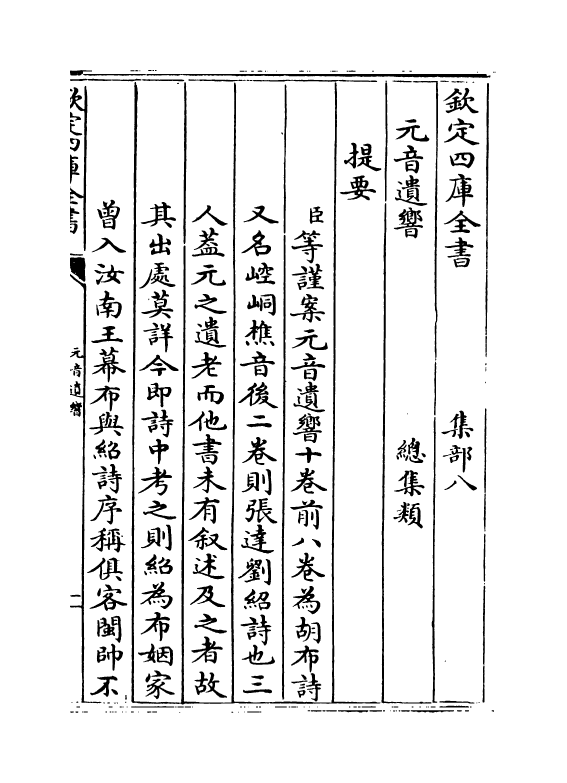 欽定四庫全書　　　　集部八
元音遺響　　　　　　總集類
提要
臣等謹案元音遺響十卷前八卷為胡布詩
又名崆峒樵音後二卷則張達劉紹詩也三
人葢元之遺老而他書未有叙述及之者故
其出處莫詳今即詩中考之則紹為布姻家
曾入汝南王幕布與紹詩序稱俱客閩帥不
欽定四庫全書
元音遺響